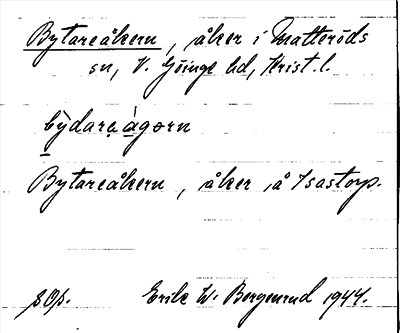 Bytareåkern, åker i Matteröds
sn, V. Göinge hd, Krist. l.
bỳdarẹàgọrn
Bytareåkern, åker å Isastorp.
sOp. Erik W. Bergenrud 1944.